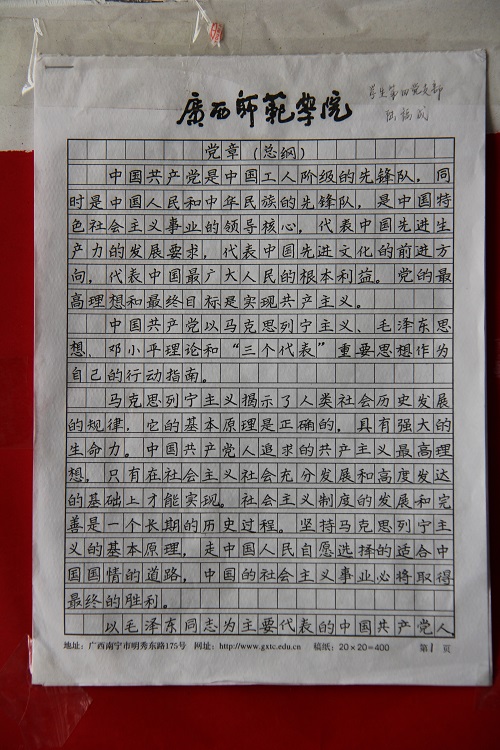 廣西師範學院
学生第四党支部
党章（总纲）
中国共产党是中国工人阶级的先锋队，同
时是中国人民和中华民族的先锋队，是中国特
色社会主义事业的领导核心，代表中国先进生
产力的发展要求，代表中国先进文化的前进方
向，代表中国最广大人民的根本利益。党的最
高理想和最终目标是实现共产主义。
中国共产党以马克思列宁主义、毛泽东思
想、邓小平理论和“三个代表”重要思想作为
自己的行动指南。
马克思列宁主义揭示了人类社会历史发展
的规律，它的基本原理是正确的，具有强大的
生命力。中国共产党人追求的共产主义最高理
想，只有在社会主义社会充分发展和高度发达
的基础上才能实现。社会主义制度的发展和完
善是一个长期的历史过程。坚持马克思列宁主
义的基本原理，走中国人民自愿选择的适合中
国国情的道路，中国的社会主义事业必将取得
最终的胜利。
以毛泽东同志为主要代表的中国共产党人，
地址：广西南宁市明秀东路175号 网址：http://www.gxtc.edu.cn 稿纸：20×20=400 第1页